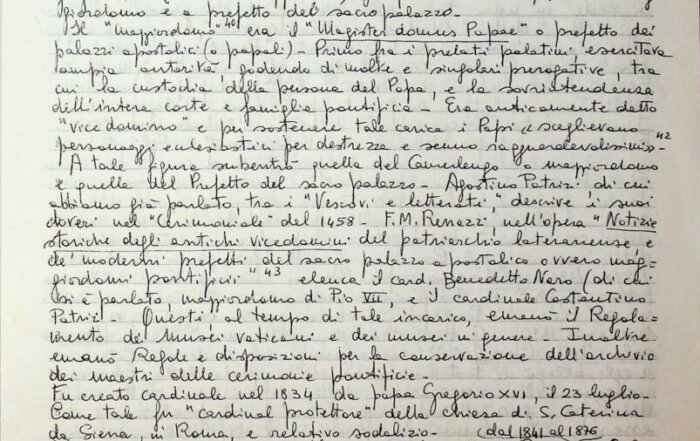 giordomo e a prefetto del sacro palazzo.-
Il "maggiordomo" 40) era il "Magister domus Papae" o prefetto dei
palazzi apostolici (o papali) - Primo fra i prelati palatini, esercitava
ampia autorità, godendo di molte e singolari prerogative, tra
cui la custodia della persona del Papa, e la sovrintendenza
dell'intera corte e famiglia pontificia - Era anticamente detto
"vice domino" e per sostenere tale carica i Papi « sceglievano
personaggi ecclesiastici per destrezza e senno ragguardevolissimi» 42 -
A tale figura subentrò quella del Camerlengo o maggiordomo
e quella del Prefetto del sacro palazzo - Agostino Patrizi di cui
abbiamo già parlato, tra i "Vescovi e letterati", descrive i suoi
doveri nel "Cerimoniale" del 1458 - F.M. Renazzi, nell'opera "Notizie
storiche degli antichi vicedomini del patriarchio lateranense e
de' moderni prefetti del sacro palazzo apostolico ovvero mag=
giordomi pontificii" 43 elenca il card. Benedetto Naro (di cui
si è parlato, maggiordomo di Pio VII, e il cardinale Costantino
Patrizi - Questi, al tempo di tale incarico, emanò il Regola=
mento dei Musei vaticani e dei musei in genere - Inoltre
emanò Regole e disposizioni per la conservazione dell'archivio
dei maestri delle cerimonie pontificie -
Fu creato cardinale nel 1834 da papa Gregorio XVI, il 23 luglio -
Come tale fu "cardinal protettore" della chiesa di S. Caterina
da Siena, in Roma, e relativo sodalizio - (dal 1841 al 1876